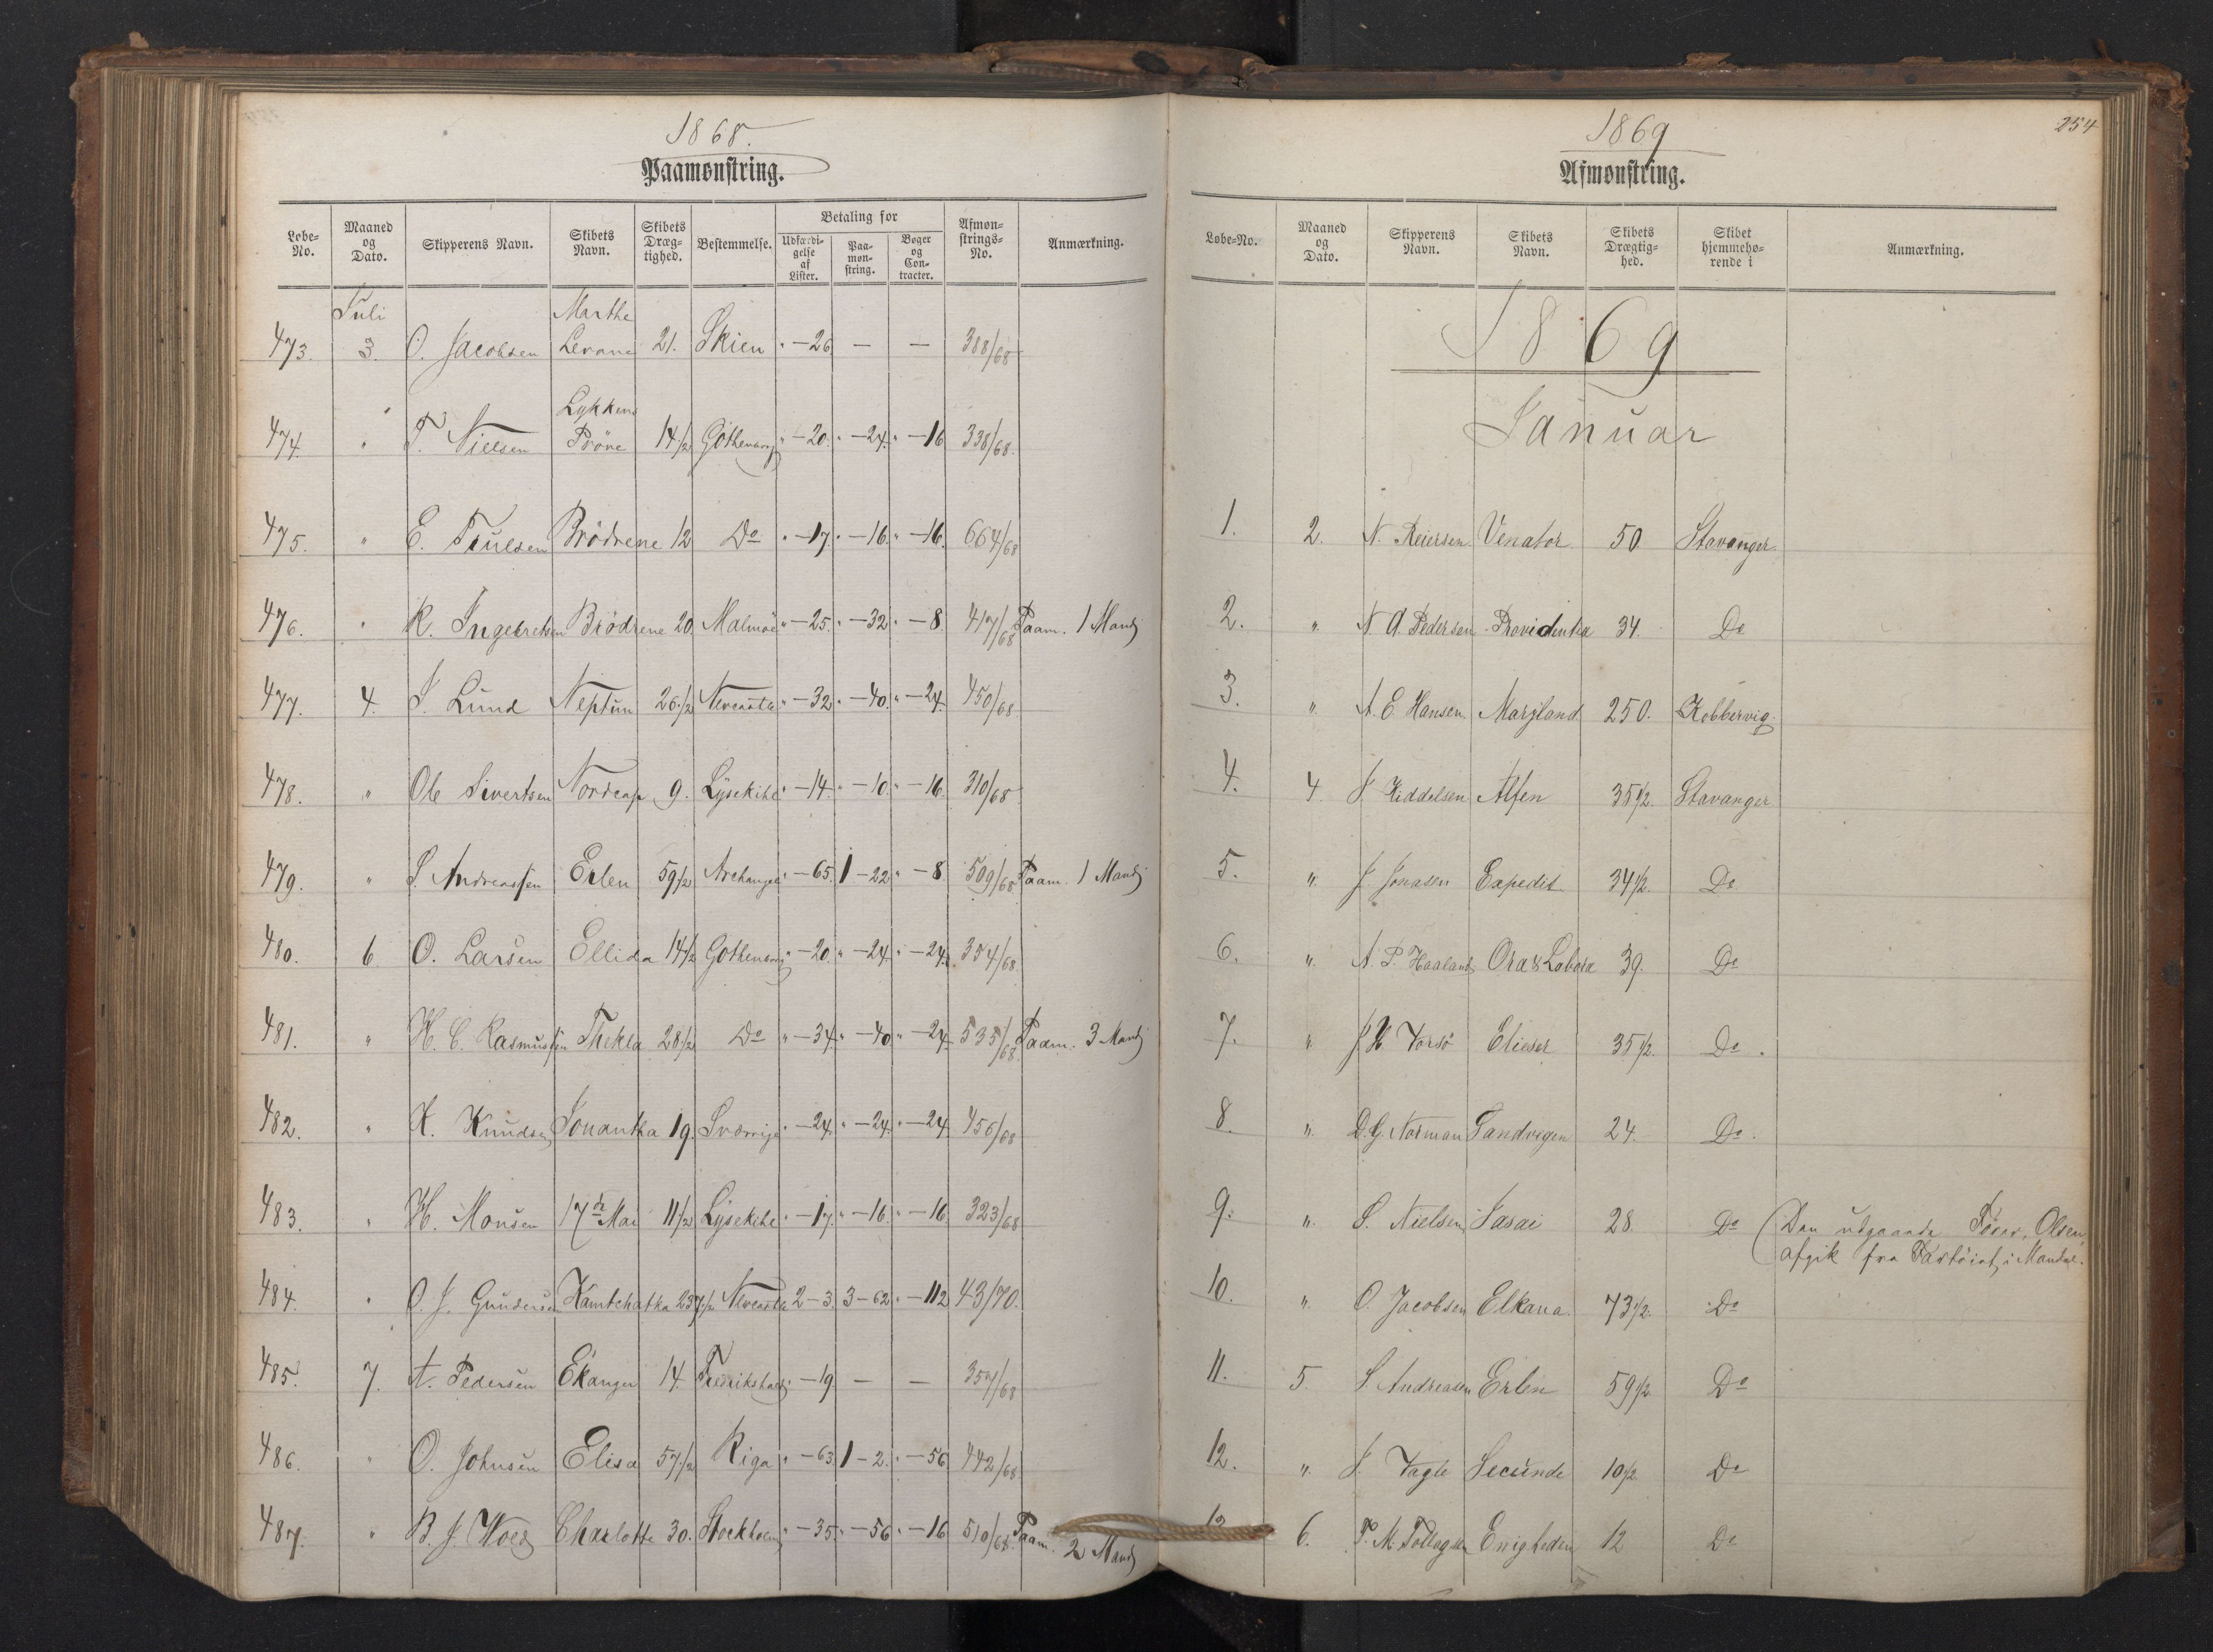 1868.
Paamønstring.
Løbe-No. Maaned og Dato. Skipperens Navn. Skibets Navn. Skibets Dræg-tighed. Bestemmelse. Betaling for Udfærdi-gelse af Lister. Paa-møn-string. Bøger og Con-tracter. Afmøn-strings-No. Anmærkning.
Juli
473. 3. O. Jacobsen Marthe Levane 21. Skien " -26 — — 388/68
474. " T. Nielsen Lykkens Pröve 14 1/2 Göthenborg " -20. " -24. " -16 338/68.
475. " E. Brödrene 12 Do " -17. " -16. " -16. 664/68
476. " R. Ingebretsen Brödrene 20 Malmöe " -25. " -32 " -8 417/68 Paam. 1 Mand
477. 4. J. Lund Neptun 26 1/2 Newcastle " -32 " -40. " -24. 450/68
478. " Ole Sivertsen Nordcap 9. Lysekihl " -14. " -10. " -16. 310/68
479. " S. Andreassen Erlen 59 1/2 Archangel " -65. 1 -22 " -8 509/68 Paam. 1 Mand
480. 6 O. Larsen Ellida 14 1/2 Gothenborg " -20. " -24. " -24. 354/68.
481. " H. C. Rasmussen Thekla 28 1/2 Do " -34. " -40 " -24. 535/68. Paam. 3 Mand
482. " K. Knudsen 19. Sverrige " -24. " -24. " -24. 456/68
483. " H. Monsen 17de Mai 11 1/2 Lysekihl " -17. " -16. " -16. 323/68
484. " O. J. Gundersen Kamtchatka 237 1/2 Newcastle 2-3. 3-62 " -112 43/70.
485. 7. A. Pedersen Ekanger 14. Fredrikshald " -19. — — 357/68
486. " O. Johnsen Elisa 57 1/2 Riga " -63. 1 -2. " -56 442/68.
487. " B. J. Charlotte 30. Stockholm " -35. " -56 " -16 510/68. Paam. 2 Mand
1869
254
Afmønstring.
Løbe-No. Maaned og Dato. Skipperens Navn. Skibets Navn. Skibets Drægtig-hed. Skibet hjemmehø-rende i Anmærkning.
1869
Januar
1. 2. N. Reiersen Venator 50. Stavanger.
2. " N. A. Pedersen Providentia 34. Do
3. " A. E. Hansen Maryland 250. Kobbervig.
4. 4. J. Alfen 35 1/2. Stavanger
5. " J. Jonasen Expedit 34 1/2. Do
6. " A. P. Haaland Ora & Labora 39. Do
7. " J. H. Elieser 35 1/2. Do.
8. " D. G. Norman Sandvigen 24. Do.
9. " S. Nielsen 28. Do (Den udgaaede Olsen,
afgik fra Fartöiet i Mandal.
10. " O. Jacobsen Elkana 73 1/2. Do
11. 5. S. Andreasen Erlen 59 1/2 Do
12. " J. Vagle Secunde 10 1/2. Do
13 6. T. M. Enigheden 12 Do